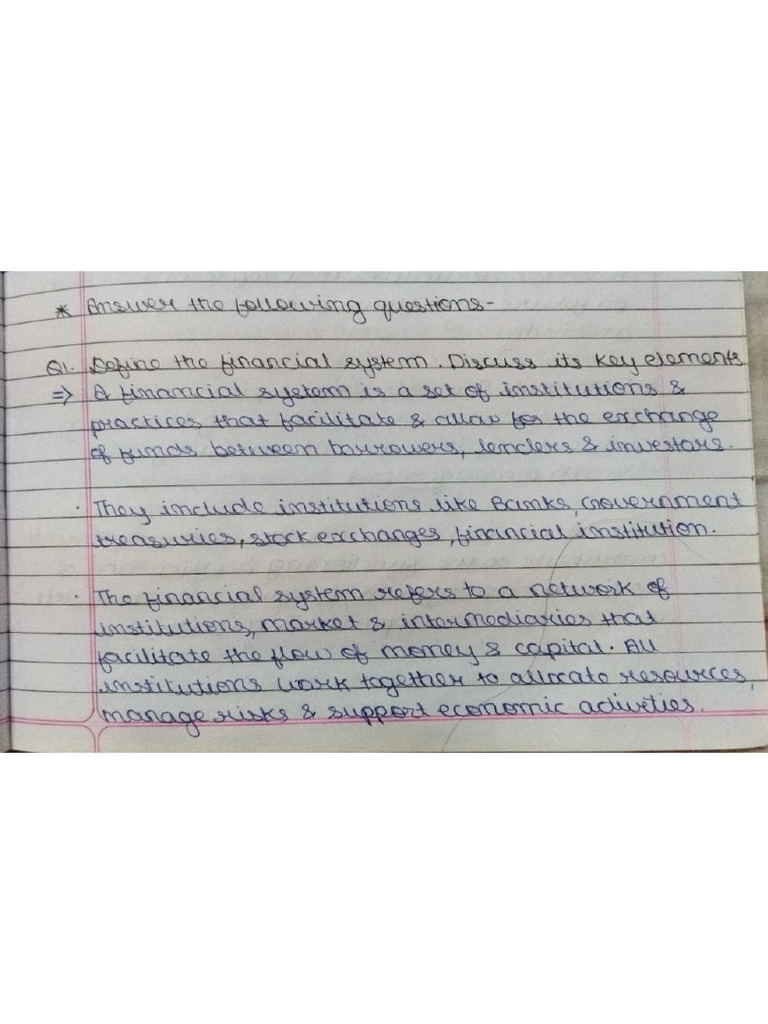 * Answer the following questions-
Q1. Define the financial system. Discuss its key elements
⇒ A financial system is a set of institutions &
practices that facilitate & allow for the exchange
of funds between borrowers, lenders & investors.
· They include institutions like Banks, Government
treasuries, stock exchanges, financial institution.
· The financial system refers to a network of
institutions, market & intermediaries that
facilitate the flow of money & capital. All
institutions work together to allocate resources,
manage risks & support economic activities.